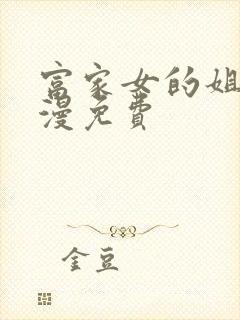 富家女的姐
漫免费
金豆